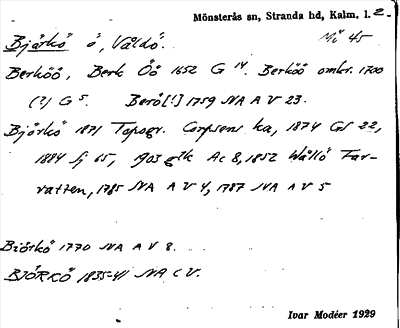 Mönsterås sn, Stranda hd, Kalm. l. 2.
Björkö ö, Våldö. Mö 45
Berköö, Berk Öö 1652 G 14. Berköö omkr. 1700
(?) G 5. Berö[!] 1759 NA A V 23.
Björkö 1871 Topogr. Corpsens ka, 1874 GS 22,
1884 Sj 65, 1903 gtk Ac 8, 1852 Wållö Far-
vatten, 1785 NA A V 4, 1787 NA A V 5
Biörkö 1770 NA A V 8.
BJÖRKÖ 1835-41 NA C V.
Ivar Modéer 1929